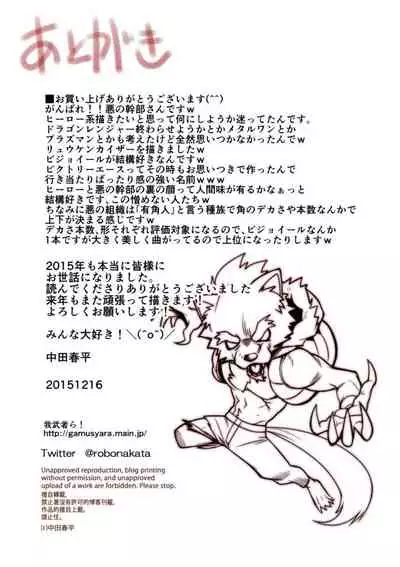 あとがき
■お買い上げありがとうございます(^^)
がんばれ！！悪の幹部さんですｗ
ヒーロー系描きたいと思って何にしようか迷ってたんです。
ドラゴンレンジャー終わらせようかとかメタルワンとか
プラズマンとかも考えたけど全然思いつかなかったんでｗ
リュウケンカイザーを描きましたｗ
ビジョイールが結構好きなんですｗ
ビクトリーエースってその時もお思いつきで作ったんで
行き当たりばったり感の強い名前ｗｗｗ
ヒーローと悪の幹部の裏の顔って人間味が有るかなぁっと
結構好きです、この憎めない人たちｗ
ちなみに悪の組織は「有角人」と言う種族で角のデカさや本数なんかで
上下が決まる感じですｗ
デカさ本数、形それぞれ評価対象になるので、ビジョイールなんか
1本ですが大きく美しく曲がってるので上位になったりしますｗ
2015年も本当に皆様に
お世話になりました。
読んでくださりありがとうございました
来年もまた頑張って描きます！
よろしくお願いします！
みんな大好き！＼(^o^)／
中田春平
20151216
我武者ら！
http://gamusyara.main.jp/
Twitter　@robonakata
Unapproved reproduction, blog printing
without permission, and unapproved
upload of a work are forbidden. Please stop.
擅自轉載。
禁止著沒有許可的博客刊載、
作品的擅自上載。
請止住。
(c)中田春平